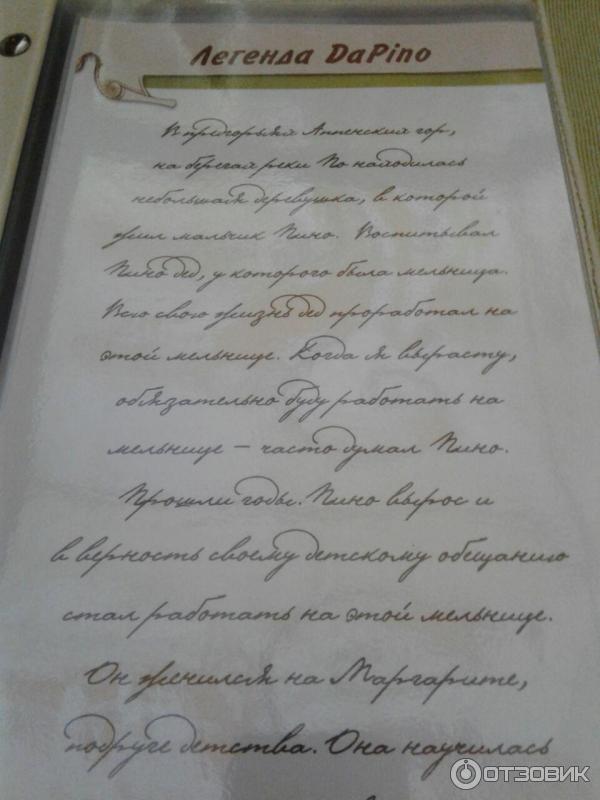 Легенда DaPino
В предгорьях Аппенских гор,
на берегах реки По находилась
небольшая деревушка, в которой
жил мальчик Пино. Воспитывал
Пино дед, у которого была мельница.
Всю свою жизнь дед проработал на
этой мельнице. Когда я вырасту,
обязательно буду работать на
мельнице – часто думал Пино.
Прошли годы. Пино вырос и
в верность своему детскому обещанию
стал работать на этой мельнице.
Он женился на Маргарите,
подруге детства. Она научилась
ОТЗОВИК